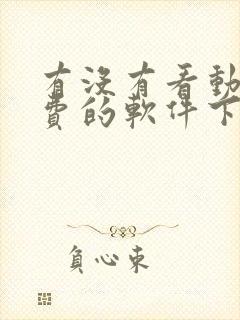 有沒有看動
費的軟件下
負心束